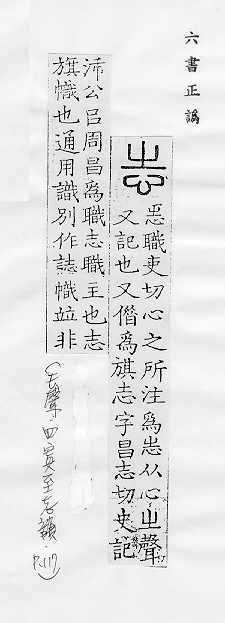 六書正譌
志職吏切心之所注爲志从心㞢聲
又記也又僣爲旗志字昌志切史記
沛公㠯周昌爲職志職主也志
旗幟也通用識別作誌幟竝非
(去聲.四寘至志韻. P.117)